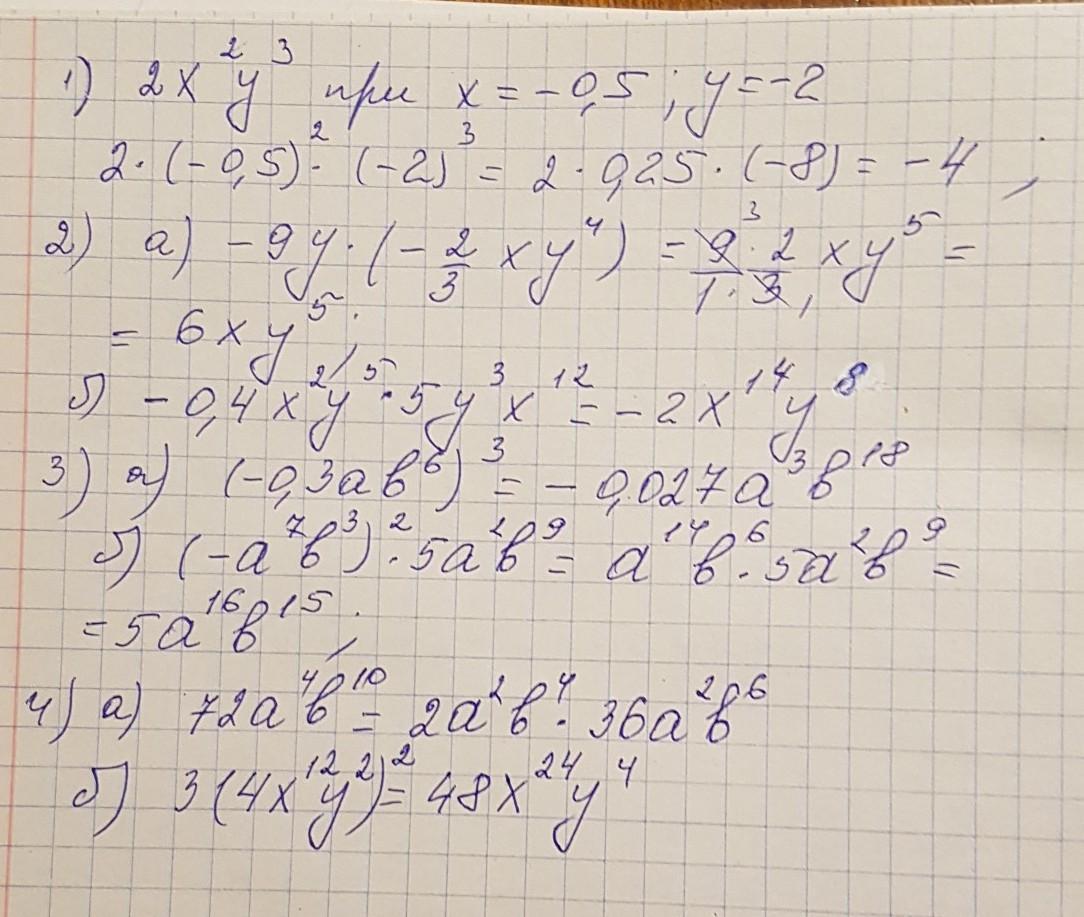 1) 2x²y³ при x = -0,5 ; y = -2
2·(-0,5)²·(-2)³ = 2·0,25·(-8) = -4 ;
2) а) -9y·(-2/3 xy⁴) = 9³·2/1·3, xy⁵ =
= 6xy⁵ ;
б) -0,4x²y⁵·5y³x¹² = -2x¹⁴y⁸
3) а) (-0,3ab⁶)³ = -0,027a³b¹⁸
б) (-a⁷b³)²·5a²b⁹ = a¹⁴b⁶·5a²b⁹ =
= 5a¹⁶b¹⁵ ;
4) а) 72a⁴b¹⁰ = 2a²b⁴·36a²b⁶
б) 3(4x¹²y²)² = 48x²⁴y⁴